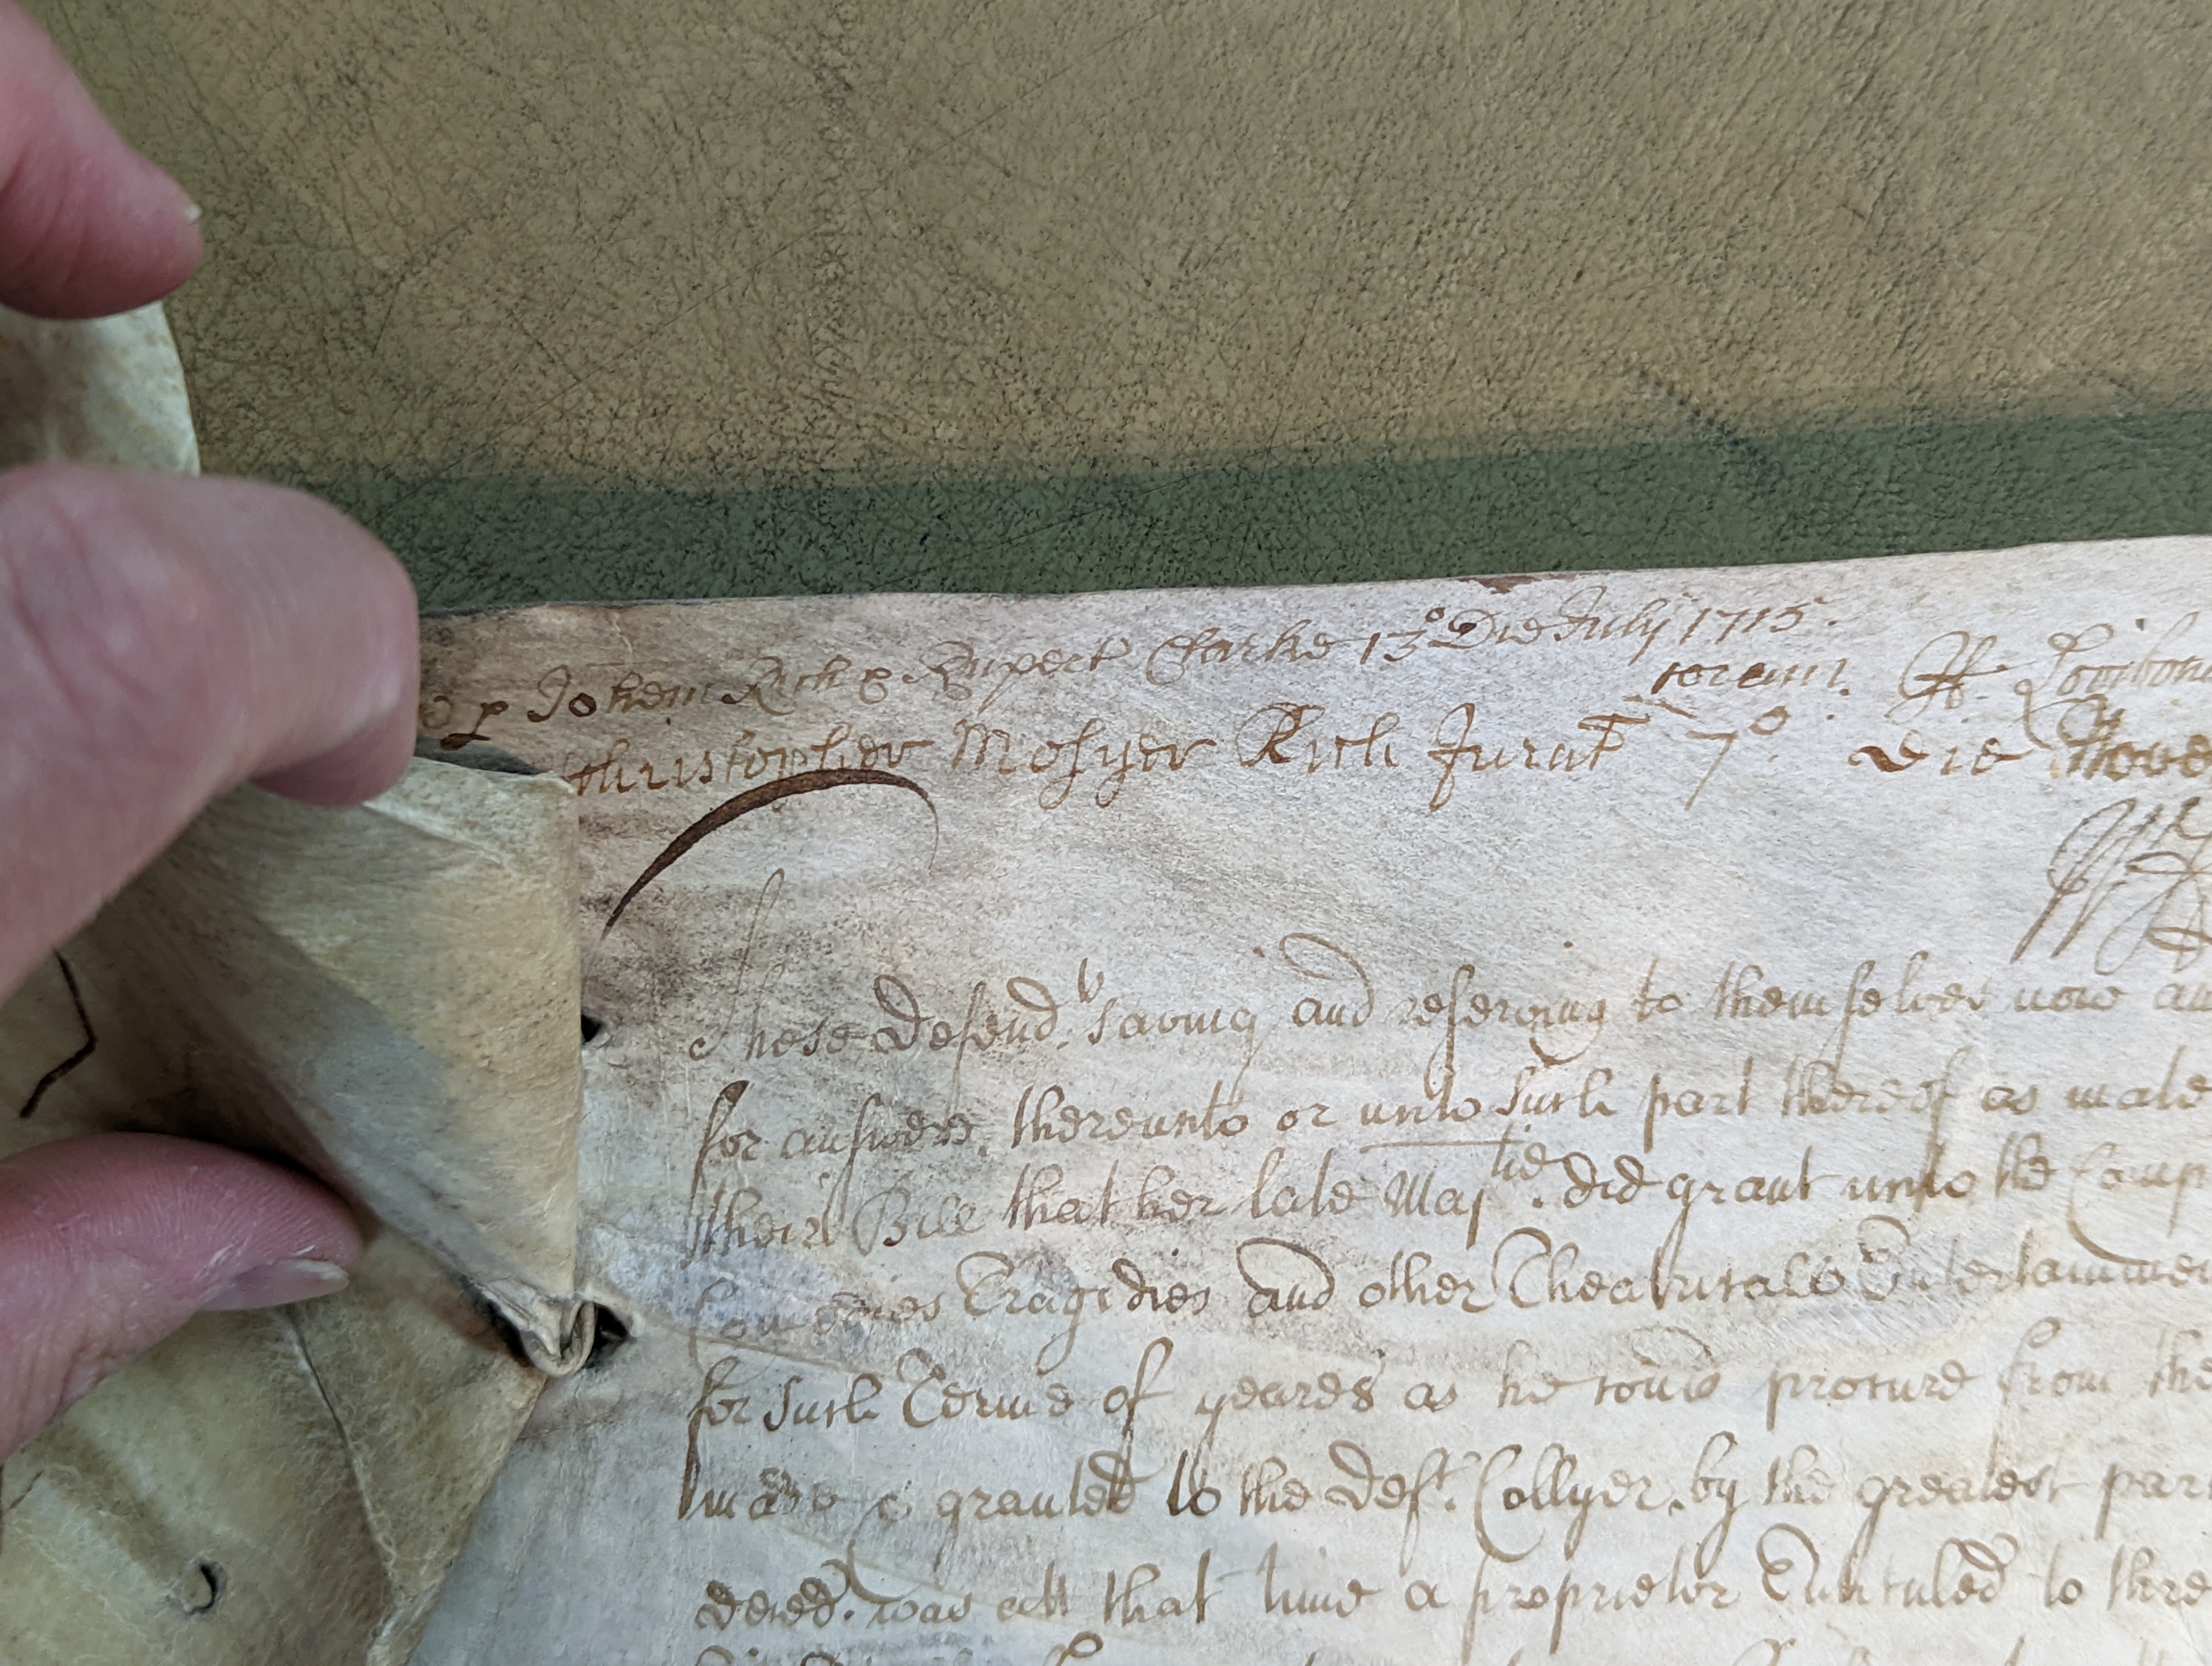 p Johem Rich & Rupert Clarke 13° Die July 1715.
coram. H. Lovibond
Christopher Mosyer Rich Jurat 7°. die Nove
These Defend.ts saving and reserving to themselves now
for answere thereunto or unto such part thereof as mate
their Bill that her late Maj.tie did grant unto the Comp
Comedies Tragidies and other Theatricall Entertainme
for such Terme of yeares as he co'uld procure from the
made & granted to the Def.t Collyer by the greatest par
deced. was att that time a proprietor Intituled to thre